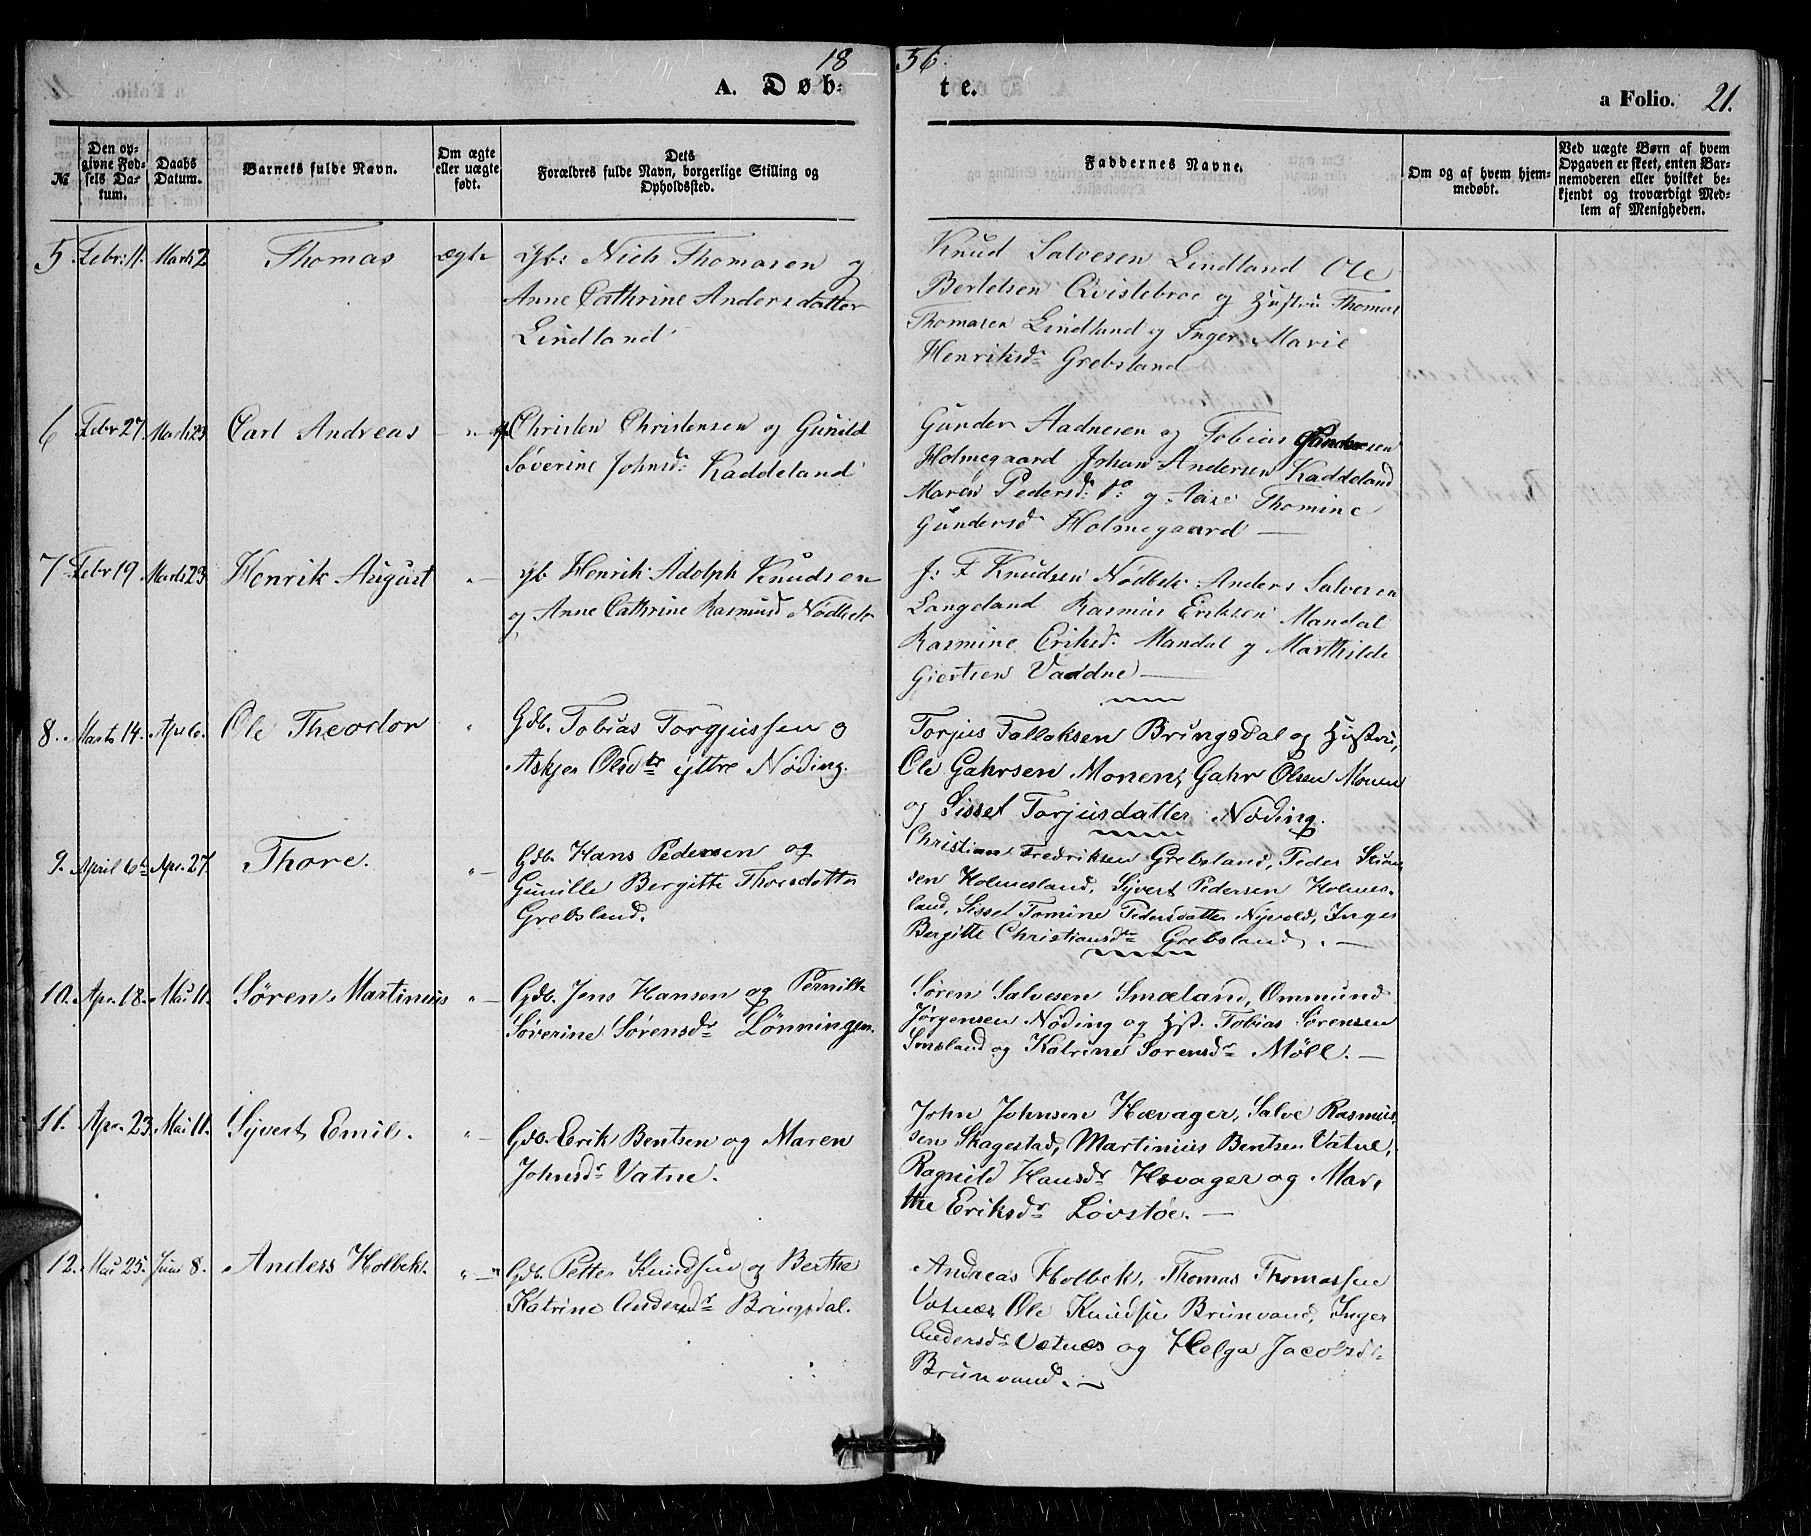 1856.
A. Døbte.
a Folio. 21.
№
Den opgivne Fødsels Datum.
Daabs Datum.
Barnets fulde Navn.
Om ægte eller uægte født.
Dets Forældres fulde Navn, borgerlige Stilling og Opholdssted.
Faddernes Navne.
Om og af hvem hjemmedøbt.
Ved uægte Børn af hvem Opgaven er skeet, enten Barnemoderen eller hvilket bekjendt og troværdigt Medlem af Menigheden.
5. Febr: 11. Marts 2 Thomas ægte
Niels Thomasen og
Anne Cathrine Andersdatter
Lindland
Knud Salvesen Lindland Ole
Berletsen Qvistebroe og Hustru Thomas
Thomasen Lindland og Inger Marie
Henriksd: Grebsland
6 Febr 27. Marts 23 Carl Andreas
Christen Christensen og Gunild
Søverine Johnsd: Kaddeland
Gunder Aadnesen og Tobias Gundersen
Holmegaard Johan Andersen Kaddeland
Maren Pedersd: do: og Aase Thomine
Gundersd Holmegaard —
7 Febr 19. Marts 23 Henrik August " —
Henrik Adolph Knudsen
og Anne Cathrine Rasmusd Nødbek
J: F Knudsen Nødbek Anders Salvesen
Langeland Rasmus Eriksen Mandal
Rasmine Eriksd: Mandal og Marthilde
Giertsen Vaddne —
8. Marts 14. Apr 6. Ole Theodor "
Gdb. Tobias Torgjussen og
Askjer Olsdtr ytre Nøding.
Torjus Fallaksen Bringsdal og Hustru,
Ole Gahrsen Monen, Gahr Olsen Monen
og Sissel Torjusdatter Nøding.
9. April 6te Apr. 27. Thore. " —
Gdb. Hans Pedersen og
Gunille Bergitte Thorsdatter
Grebsland.
Christian Fredriksen Grebsland, Peder
sen Holmesland, Sijvert Pedersen Holmes-
land, Sissel Tomine Pedersdatter Nyvold, Inger
Bergitte Christiansdtr Grebsland. —
10. Apr. 18. Mai 11. Søren Martinius " —
Gdb. Jens Hansen og Pernille
Søverine Sørensdr Lønningen.
Søren Salvesen Smæland, Ommund
Jørgensen Nøding og Hst. Tobias Sørensen
Smæland og Katrine Sørensdr Møll. —
11. Apr. 23. Mai 11. Sijvert Emil. " —
Gdb. Erik Bentsen og Maren
Johnsdr Vatne.
John Johnsen Hævager, Salve Rasmus-
sen Skagestad, Martinius Bentsen Vatne,
Ragnild Hansdr Hævager og Mar-
the Eriksdr Løvstøe. —
12. Mai 25. Juni 8. Anders Holbek. " — "
Gdb. Petter Knudsen og Berthe
Katrine Andersdr Bringsdal.
Andreas Holbek, Thomas Thomassen
Vatnes, Ole Knudsen Brunvand, Inger
Andersdr Vatnes og Helga Jacobsdr
Brunvand. —